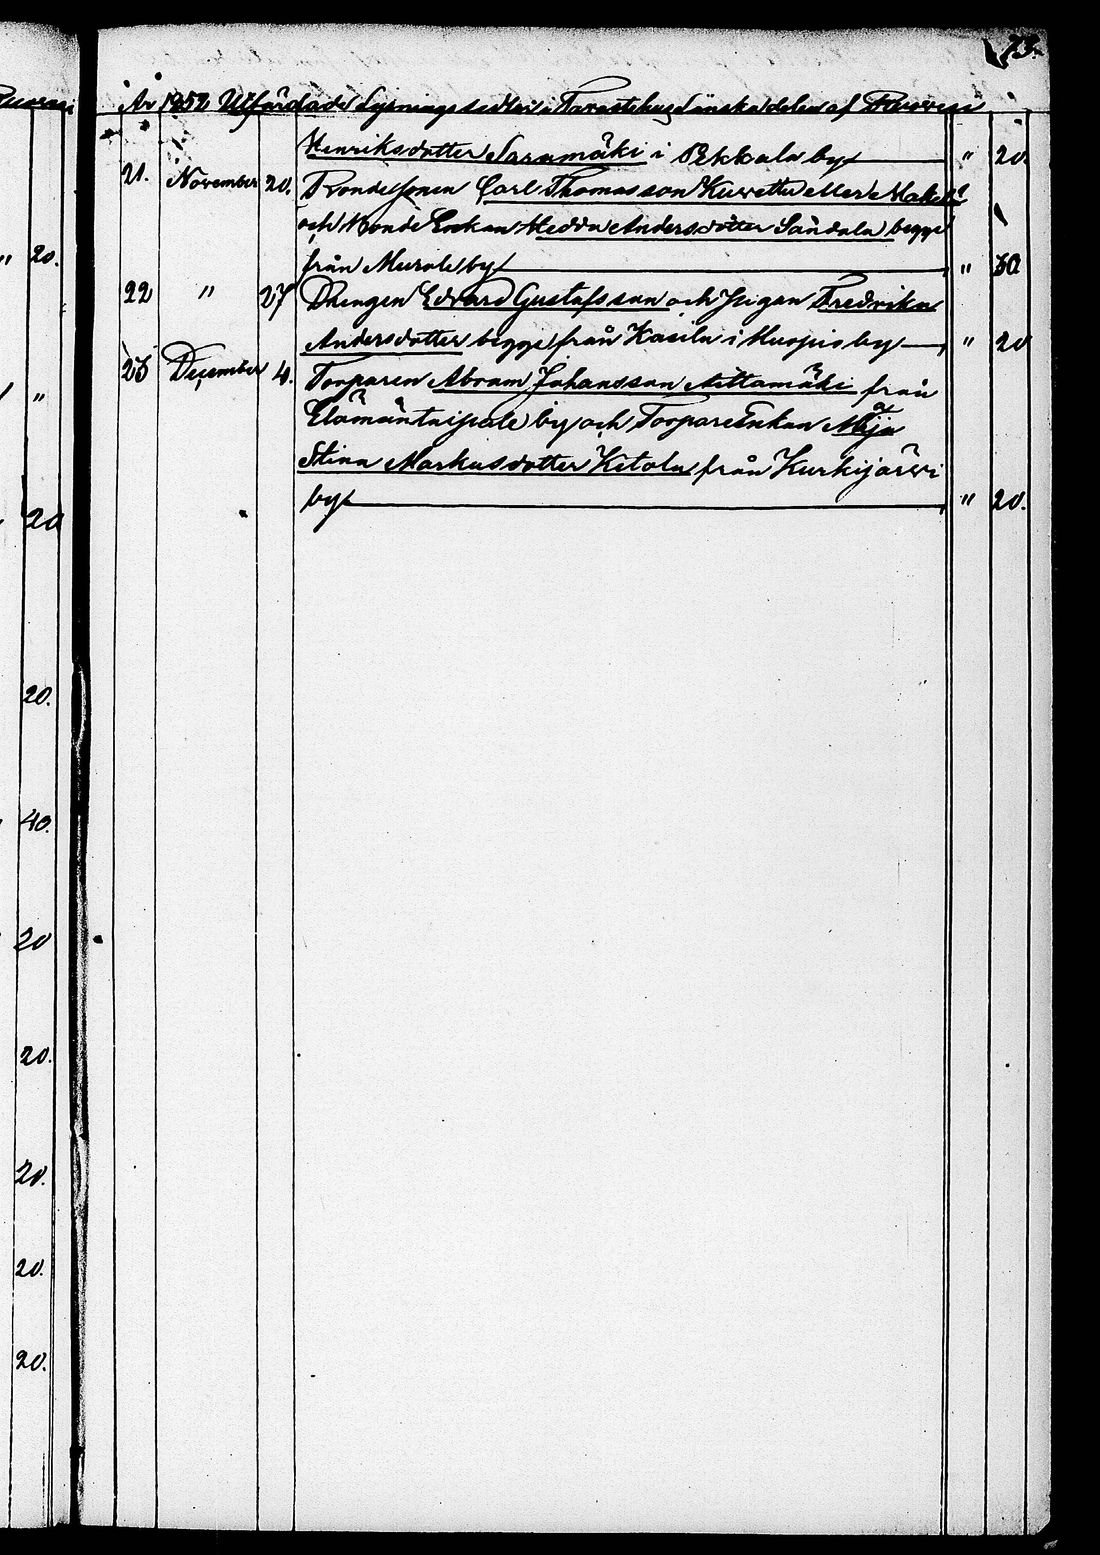 73.
År 1852 Utfärdade Lysningssedlar i Tavastehus Länska delen af Ruovesi
Henriksdotter Saramäki i Pekkala by " 20.
21. November 20. Bondesonen Carl Thomasson Kuretta eller Makela
och Bonde Enkan Hedda Andersdotter Sandala begge
från Murole by " 30
22 " 27 Drengen Edvard Gustafsson och Pigan Fredrika
Andersdotter begge från Kasila i Muspis by " 20
23 December 4. Torparen Abram Johansson Aittamäki från
by och TorpareEnkan Maja
Stina Markusdotter Ketola från Kurkijärvi
by " 20.
" 20.
"
20
20.
40.
20
20.
20.
20.
20.